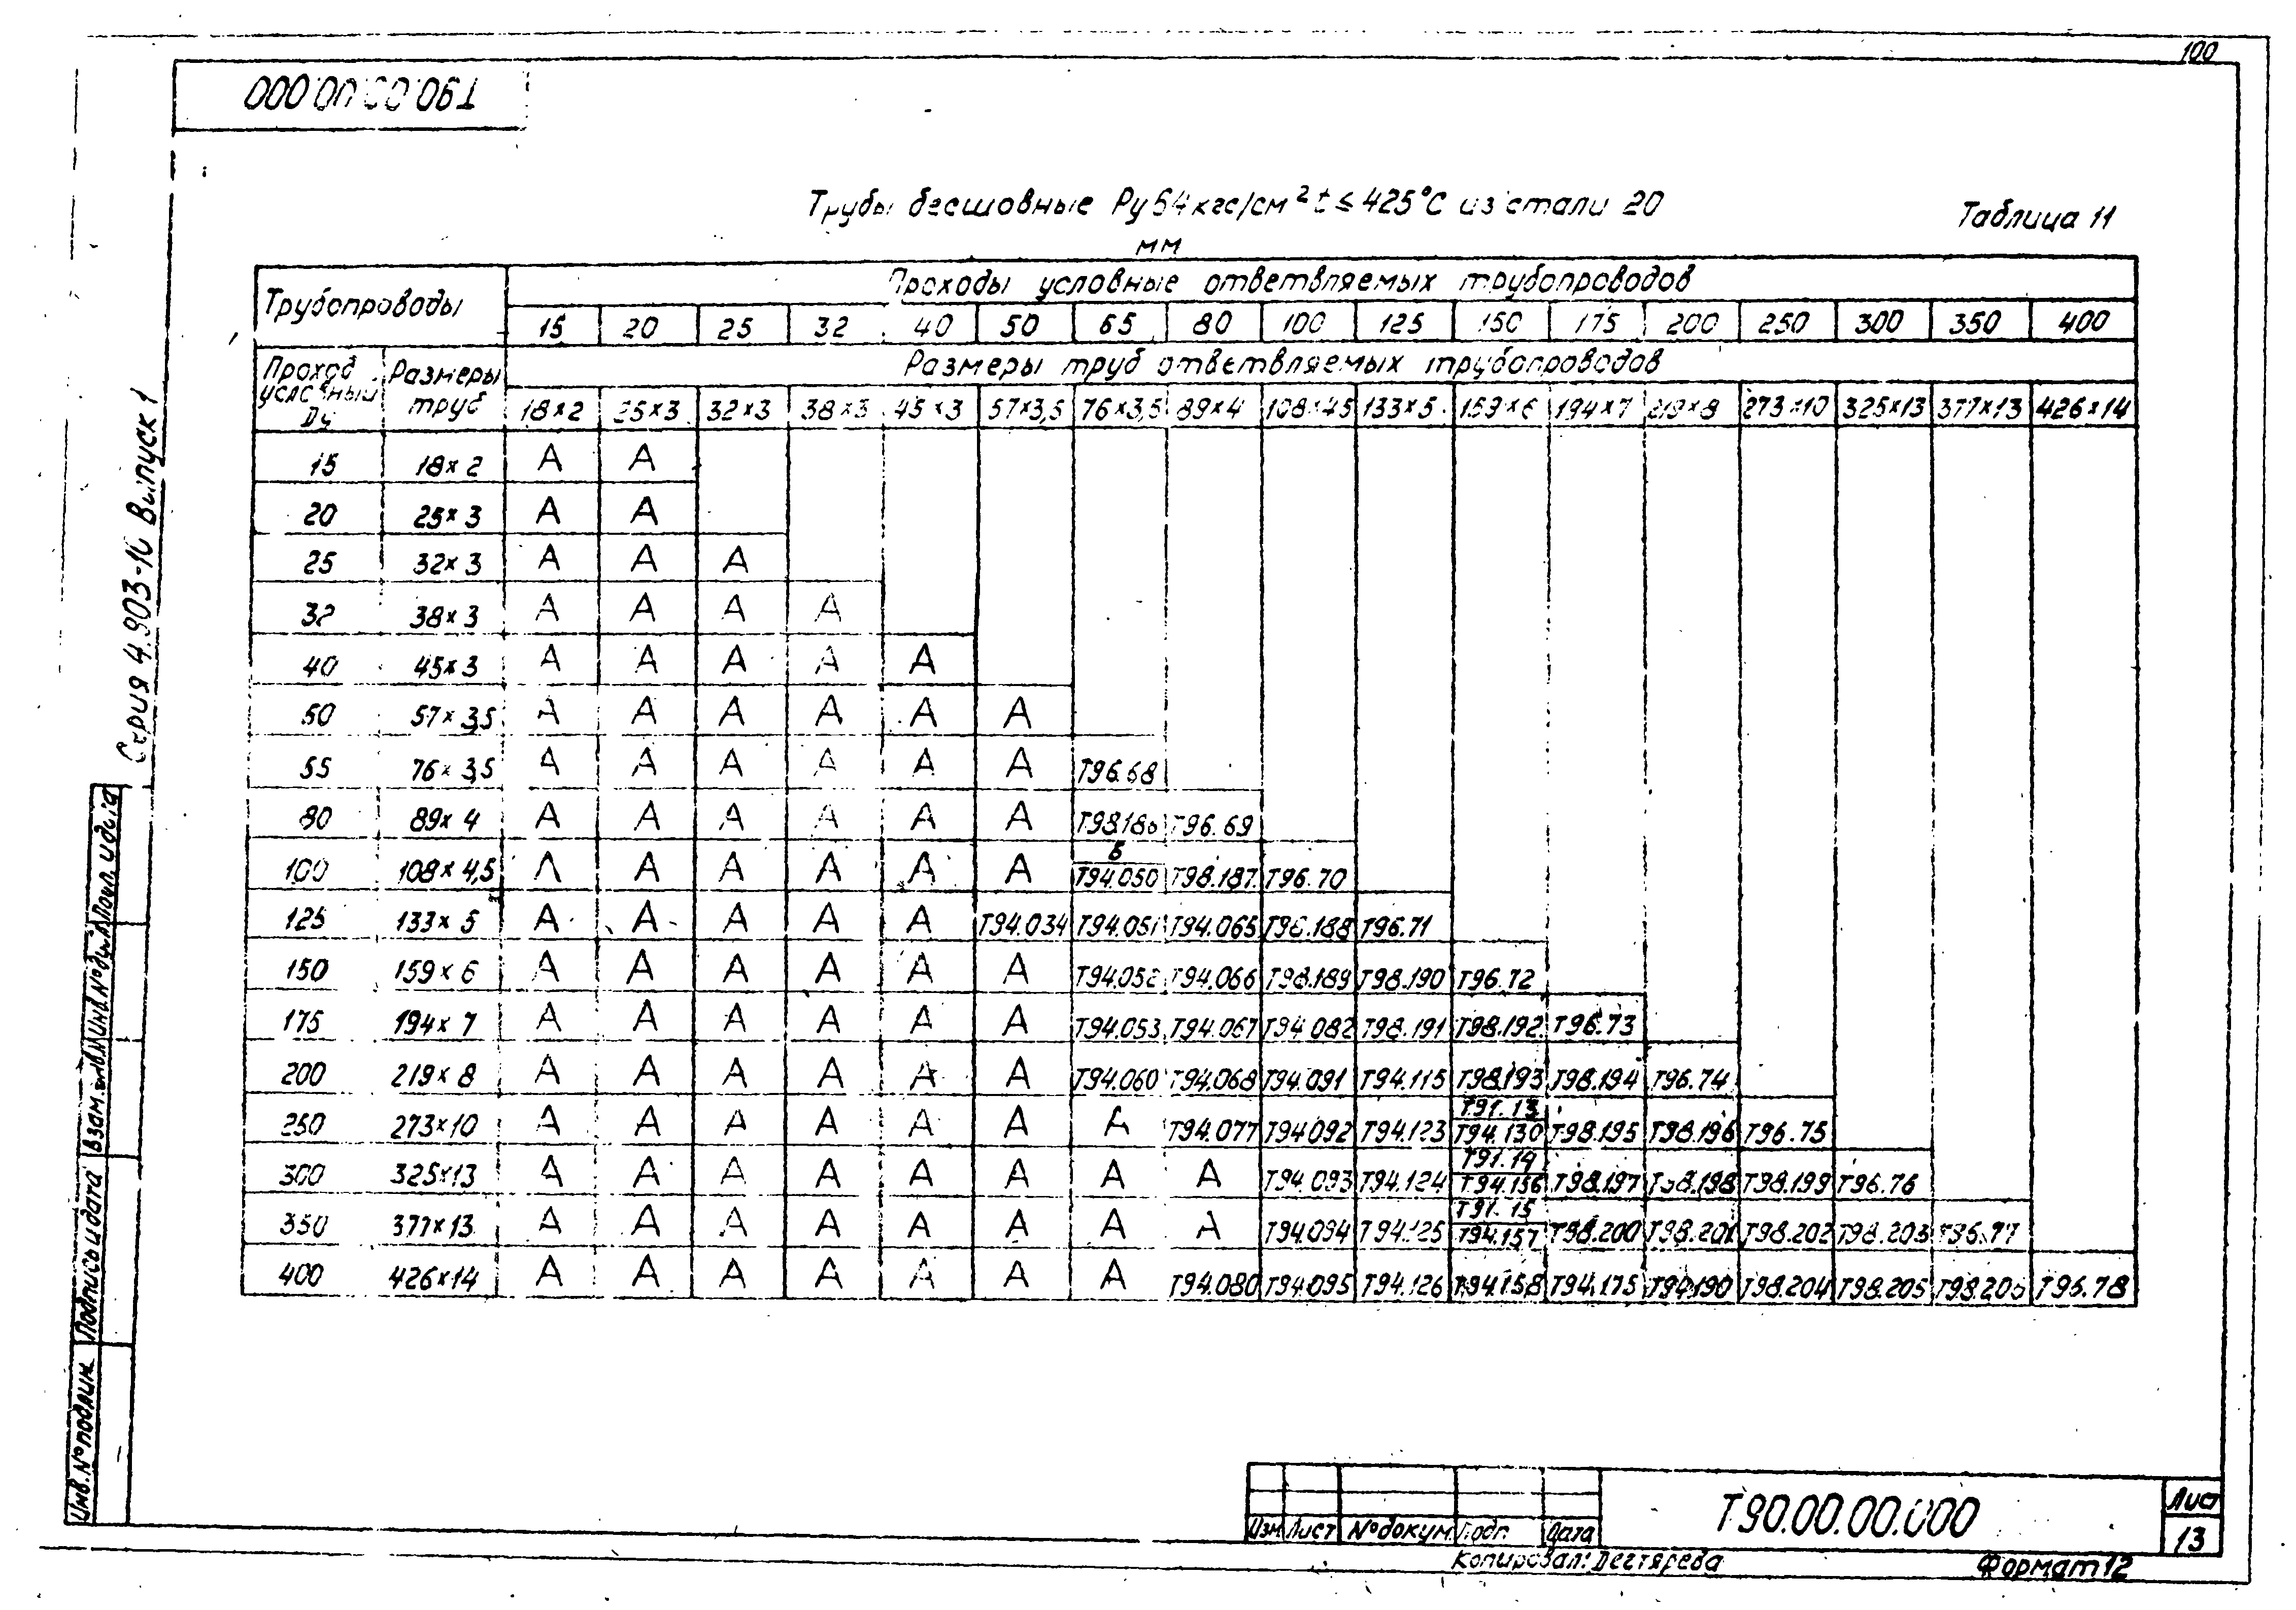 100
Т90.00.00.000
Трубы бесшовные Ру64кгс/см² t ≤ 425°С из стали 20
Таблица 11
мм
Трубопроводы
Проходы условные ответвляемых трубопроводов
15 20 25 32 40 50 65 80 100 125 150 175 200 250 300 350 400
Проход условный Ду
Размеры труб
Размеры труб ответвляемых трубопроводов
18×2 25×3 32×3 38×3 45×3 57×3,5 76×3,5 89×4 108×4,5 133×5 159×6 194×7 219×8 273×10 325×13 377×13 426×14
15 18×2 А А
20 25×3 А А
25 32×3 А А А
32 38×3 А А А А
40 45×3 А А А А А
50 57×3,5 А А А А А А
65 76×3,5 А А А А А А Т96.68
80 89×4 А А А А А А Т98.186 Т96.69
100 108×4,5 А А А А А А Б/Т94.050 Т98.187 Т96.70
125 133×5 А А А А А Т94.034 Т94.051 Т94.065 Т98.188 Т96.71
150 159×6 А А А А А А Т94.052 Т94.066 Т98.189 Т98.190 Т96.72
175 194×7 А А А А А А Т94.053 Т94.067 Т94.082 Т98.191 Т98.192 Т96.73
200 219×8 А А А А А А Т94.060 Т94.068 Т94.091 Т94.115 Т98.193 Т98.194 Т96.74
250 273×10 А А А А А А А Т94.077 Т94.092 Т94.123 Т91.13/Т94.130 Т98.195 Т98.196 Т96.75
300 325×13 А А А А А А А А Т94.093 Т94.124 Т91.14/Т94.156 Т98.197 Т98.198 Т98.199 Т96.76
350 377×13 А А А А А А А А Т94.094 Т94.125 Т91.15/Т94.157 Т98.200 Т98.201 Т98.202 Т98.203 Т96.77
400 426×14 А А А А А А А Т94.080 Т94.095 Т94.126 Т94.158 Т94.175 Т94.190 Т98.204 Т98.205 Т98.206 Т96.78
Серия 4.903-10 Выпуск 1
Инв. № подлин. Подпись и дата Взам. инв. № Инв. № дубл. Подп. и дата
Изм Лист № докум. Подп. Дата
Т90.00.00.000
Лист
13
Копировал: Дегтярева
Формат 12